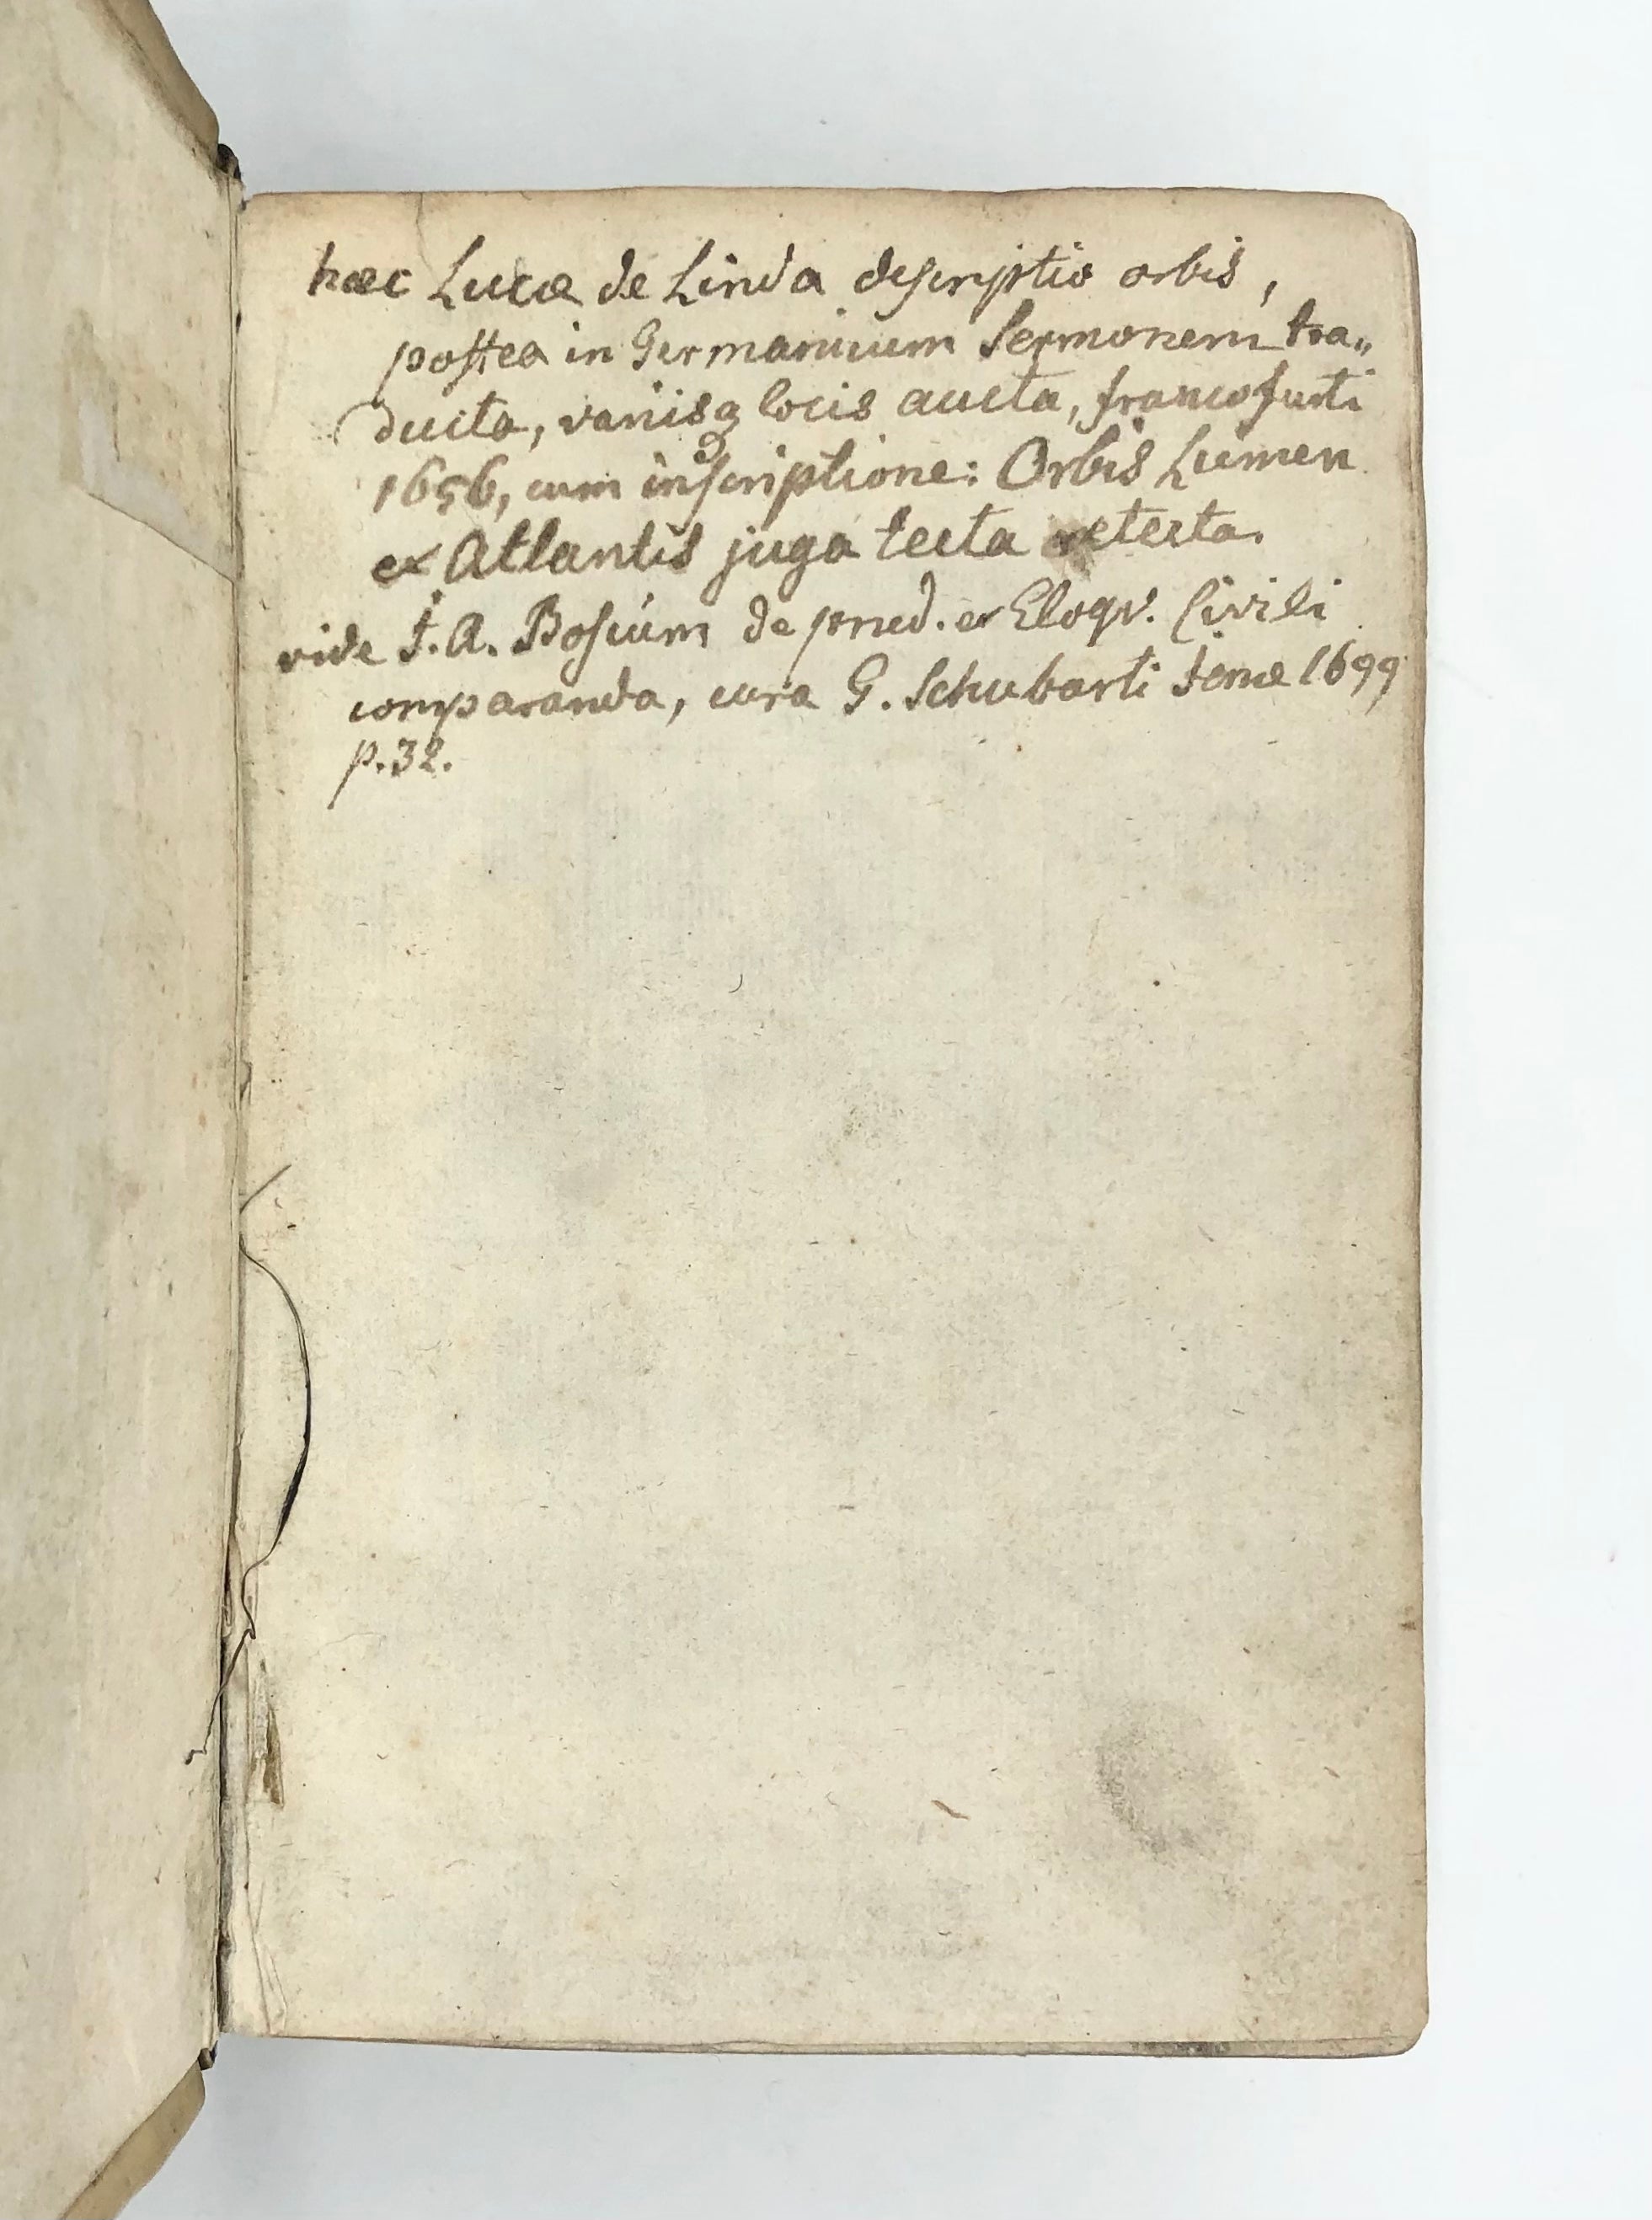 hæc Lucæ de Linda descriptio orbis,
postea in Germanicum Sermonem tra„
ducta, variisq locis aucta, francofurti
1656, cum inscriptione: Orbis Lumen
et Atlantis juga tecta retecta.
vide J. A. Bosium de prud. et Eloqv. Civili
comparanda, cura G. Schubarti Jenæ 1699
p. 32.